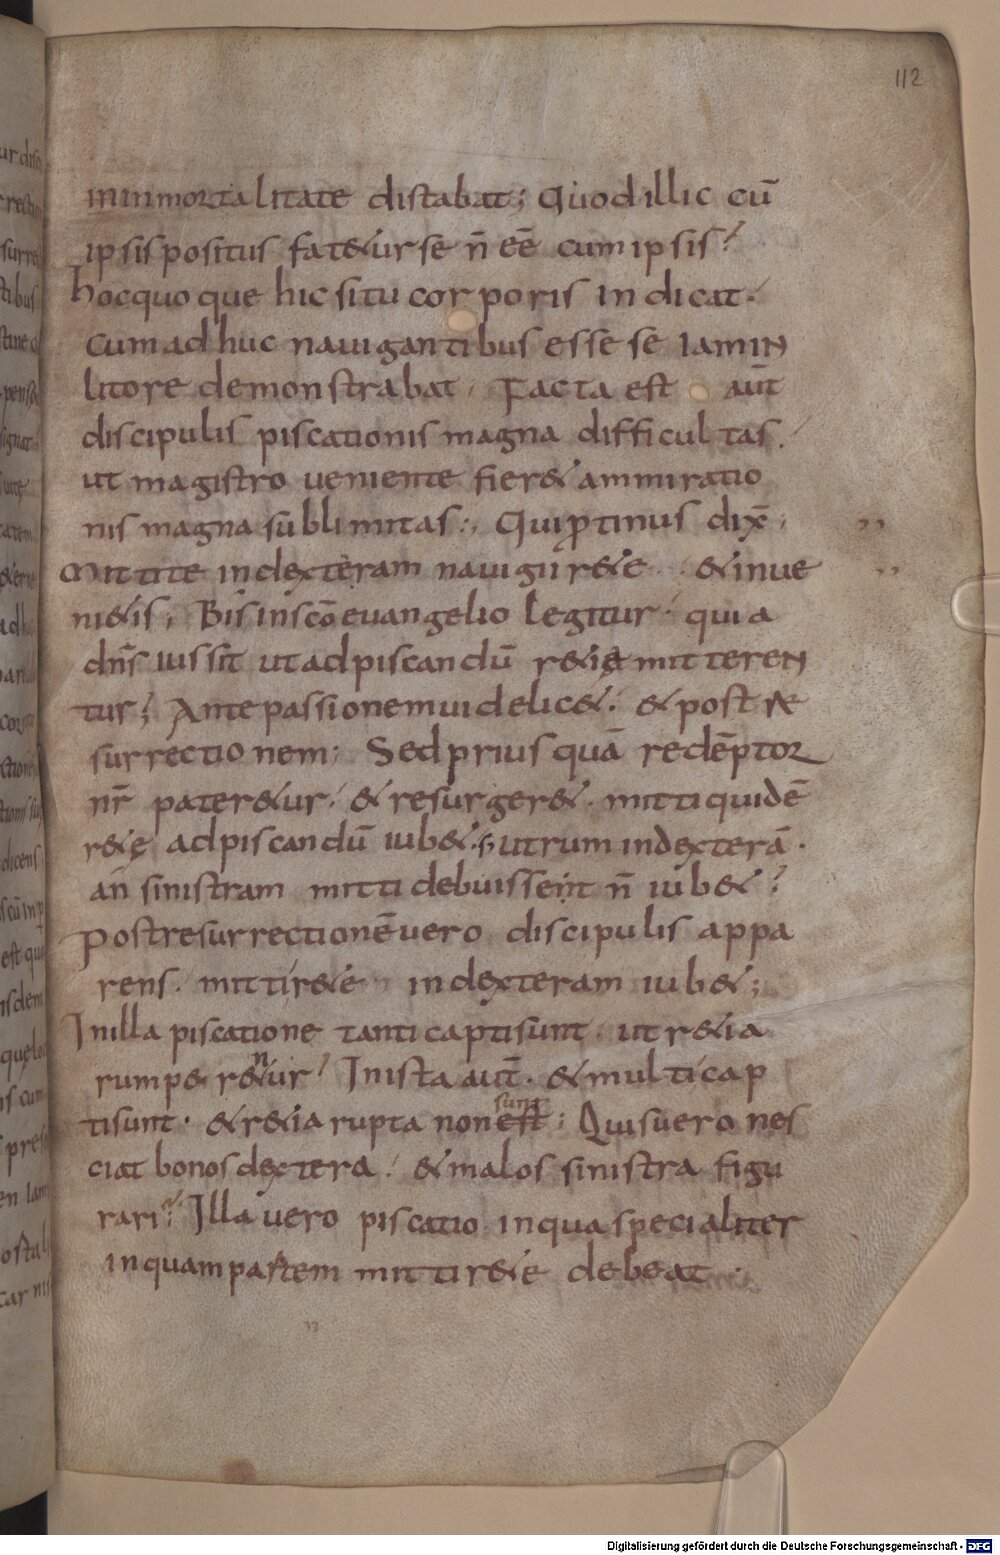 112
inmortalitate distabat; Quod illic cū
ipsis positus fat&ur se n̄ eē cum ipsis?
hoc quoque hic situ corporis indicat.
cum adhuc nauigantibus esse se iam in
litore demonstrabat. Facta est aūt
discipulis piscationis magna difficultas.
ut magistro ueniente fier& ammiratio
nis magna sublimitas:. Qui ꝓtinus dix̄.
Mittite in dexteram nauigii r&e & inue
ni&is. Bis in sc̄o euangelio legitur. quia
dn̄s iussit ut ad piscandū r&ię mitteren
tur; Ante passionem uidelic&. & post re
surrectionem; Sed prius quā redēptor
nr̄ pater&ur. & resurger&. mitti quidē
r&ię ad piscandū iub&. s; utrum in dexterā.
an sinistram mitti debuissent n̄ iub&?
Post resurrectionē uero discipulis appa
rens. mitti r&ie in dexteram iub&;
In illa piscatione tanti capti sunt. ut r&ia
rumper&nur. In ista aūt. & multi cap
ti sunt. & r&ia rupta non est sunt; Quis uero nes
ciat bonos dextera. & malos sinistra figu
rari? Illa uero piscatio in qua specialiter
in quam partem mitti r&ie debeat.
Digitalisierung gefördert durch die Deutsche Forschungsgemeinschaft - DFG